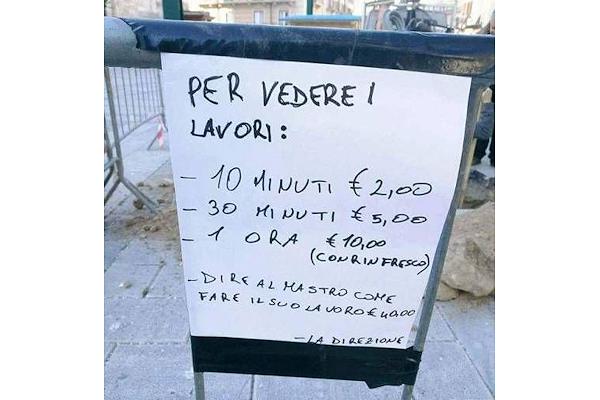 PER VEDERE I
LAVORI:
- 10 MINUTI € 2,00
- 30 MINUTI € 5,00
- 1 ORA € 10,00
(CON RINFRESCO)
- DIRE AL MASTRO COME
FARE IL SUO LAVORO € 40,00
- LA DIREZIONE